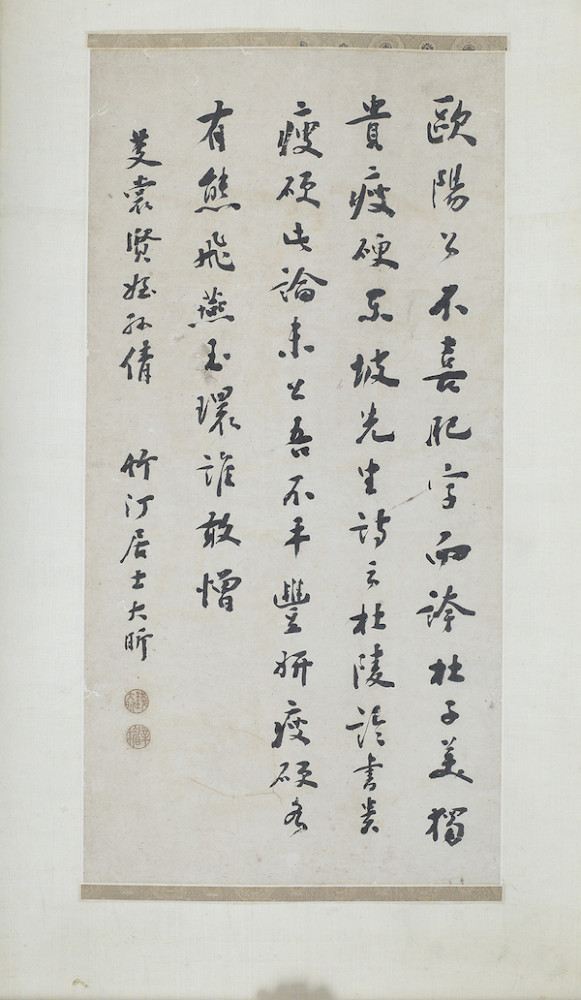 歐陽公不喜肥字而誇杜子美獨
貴瘦硬東坡先生詩云杜陵論書貴
瘦硬此論未公吾不平豐妍瘦硬各
有態飛燕玉環誰敢憎
賢姪孫倩 竹汀居士大昕